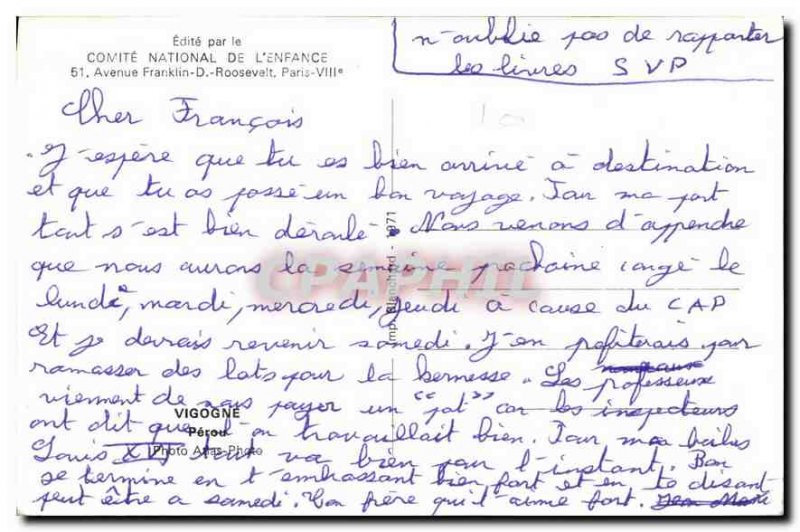 Édité par le
COMITÉ NATIONAL DE L'ENFANCE
51, Avenue Franklin-D.-Roosevelt, Paris-VIIIe
n'oublie pas de rapporter
les livres SVP
Cher François
J'espère que tu es bien arrivé à destination
et que tu as passé un bon voyage. Pour ma part
tout s'est bien déroulé. Nous venons d'apprendre
que nous aurons la semaine prochaine congé le
lundi, mardi, mercredi, jeudi à cause du CAP
Et je devrais revenir samedi. J'en profiterais pour
ramasser des lots pour la kermesse. Les professeurs
viennent de nous payer un "pot" car les inspecteurs
ont dit que l'on travaillait bien. Pour ma
Louis XIV tout va bien pour l'instant. Bon
se termine en t'embrassant bien fort et en te disant
peut être a samedi. Ton frère qui t'aime fort. Jean Marie
VIGOGNE
Pérou
Photo Atlas-Photo
Imp. Blanchard - 1971
CPAPHIL